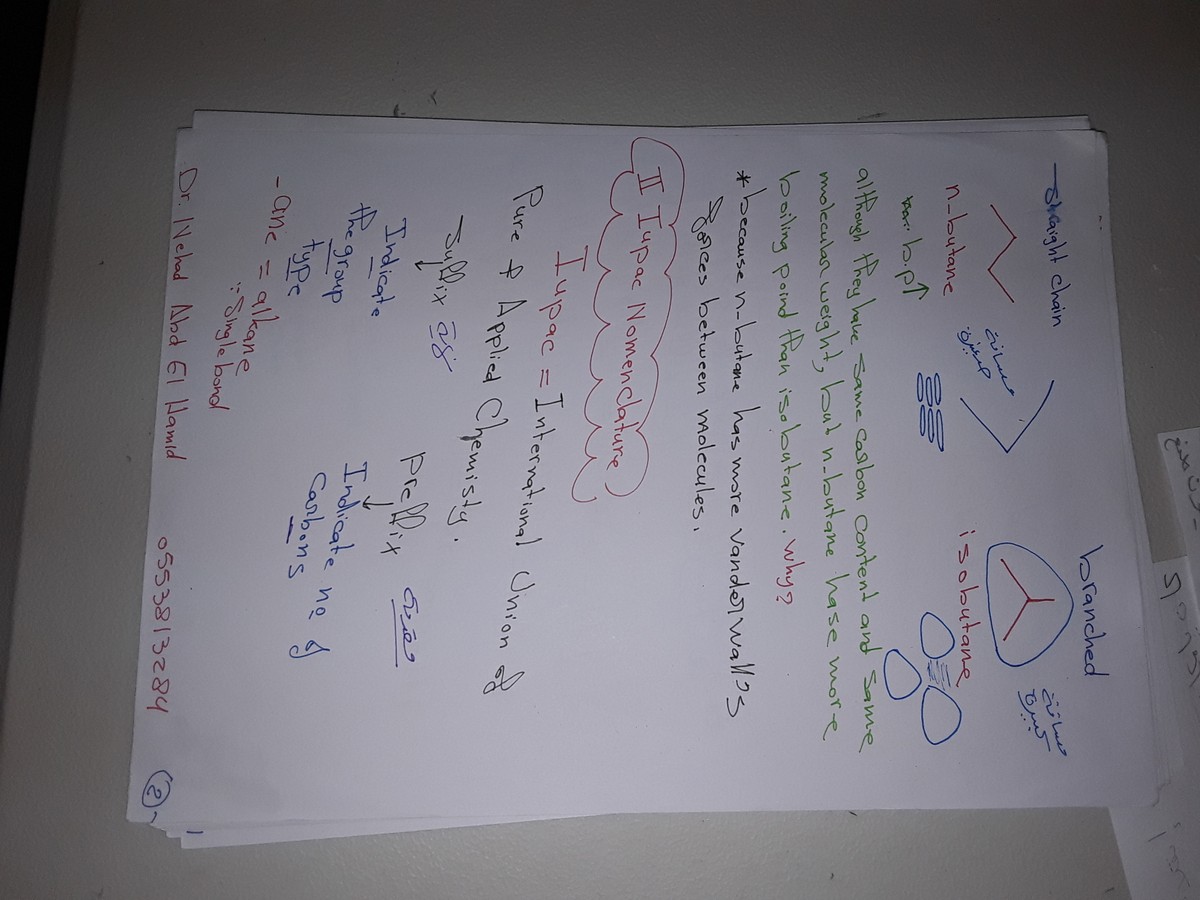 straight chain
branched
n-butane
isobutane
مسافة
صغيرة
مسافة
كبيرة
b.p↑
although they have same carbon content and same
molecular weight, but n-butane hase more
boiling point than isobutane. why?
* because n-butane has more vander wall's
forces between molecules.
II Iupac Nomenclature
Iupac = International Union of
Pure & Applied Chemisty.
Suffix
preffix
Indicate
the group
type
Indicate no. of
Carbons
-ane = alkane
: Single bond
Dr. Nehad Abd El Hamid 0553813284
2